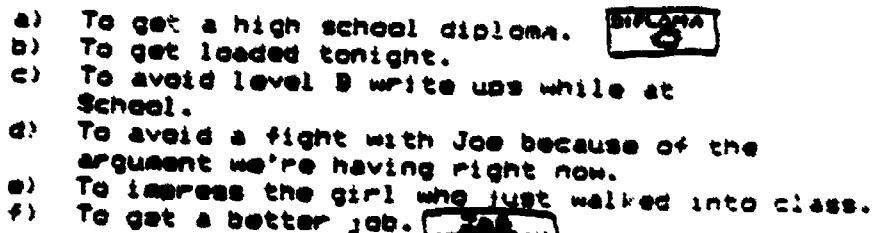 a) To get a high school diploma. DIPLOMA
b) To get loaded tonight.
c) To avoid level D write ups while at
School.
d) To avoid a fight with Joe because of the
argument we're having right now.
e) To impress the girl who just walked into class.
f) To get a better job. JOB